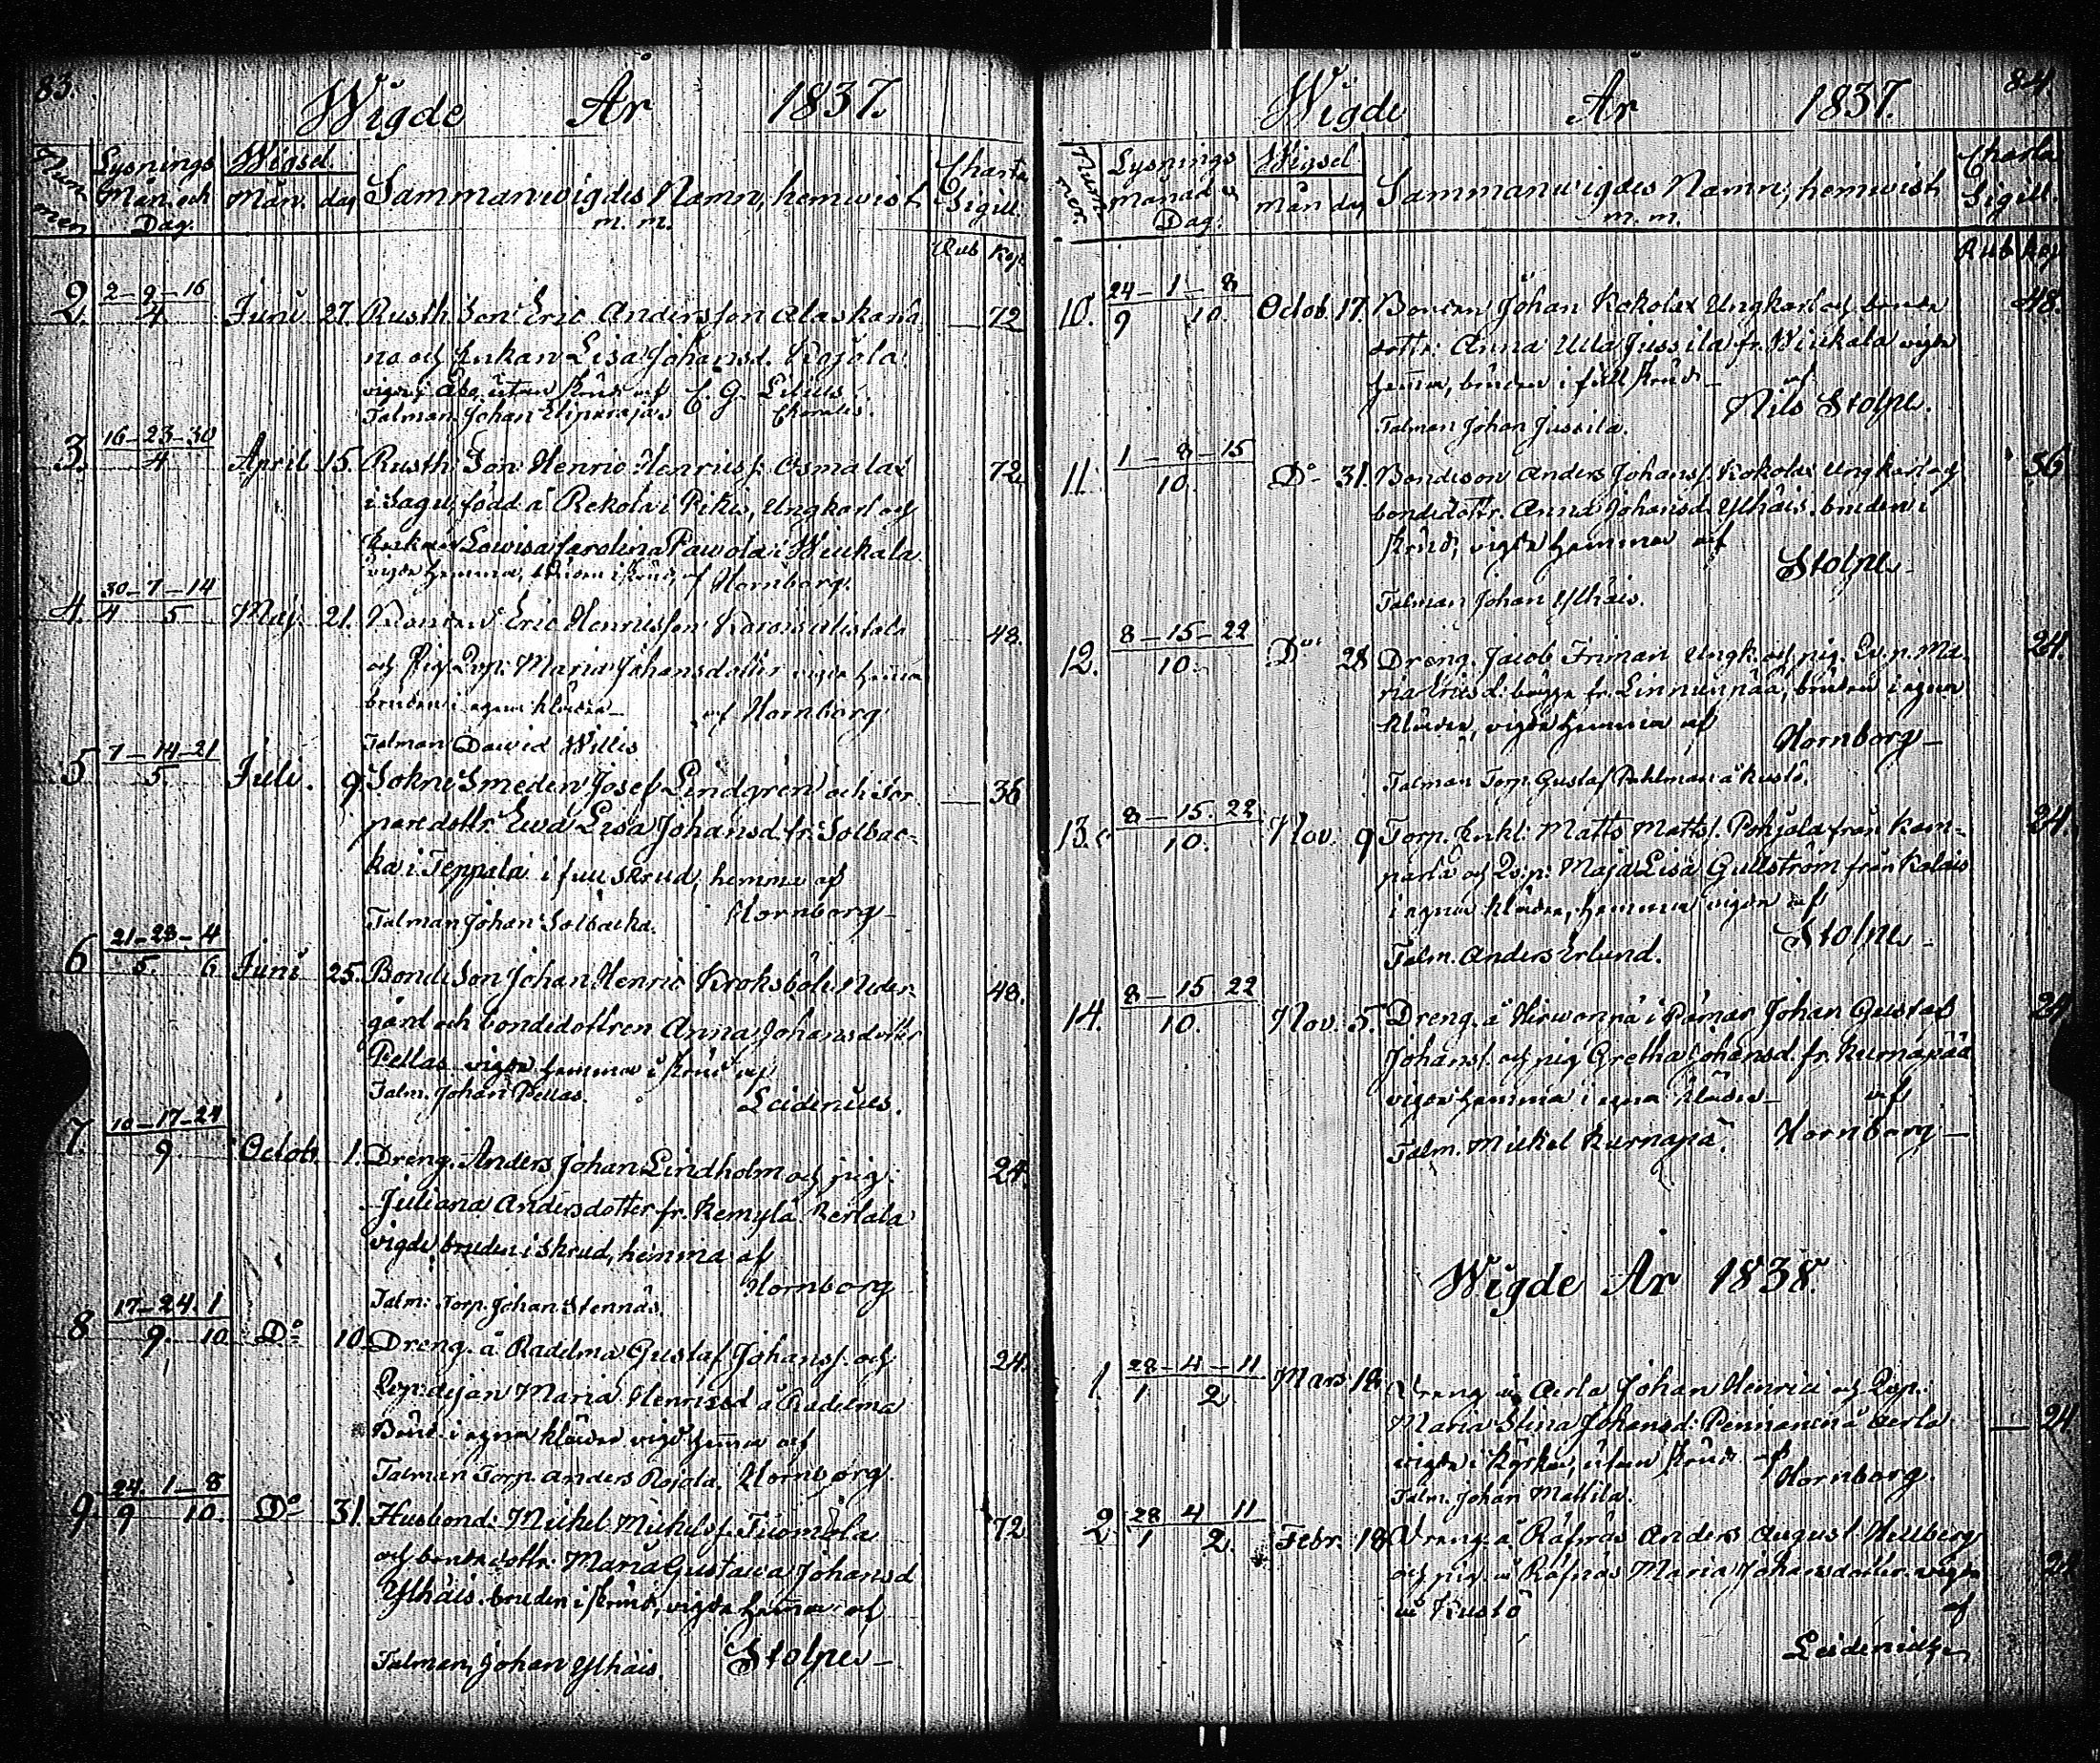 83.
Wigde År 1837.
Nummer
Lysnings Mån. och Dag.
Wigsel
Mån. dag
Sammanwigdes Namn, hemvist
m. m.
Charta Sigill.
Rub Kop.
2. 2-9-16 / 4 Juni 27. Rusth. Son Eric Andersson Alaskana
no och Enkan Lisa Johansd.
vigde i Åbo utan skrud af C. G.
Talman Johan
3. 16-23-30 / 4 April 15. Rusth. Son Henric Henricss. 72
i Sagu, född å Rekola i Pikis, Ungkarl och
Lowisa Carolina Pawola i Wiukala
vigde hemma, bruden i skrud af Hornborg.
4. 30-7-14 / 4 5 Maj. 21. Eric Henricsson 48.
och Pig. Maria Johansdotter vigde hemma
bruden i egna kläder af Hornborg
Talman David Willis
5 7-14-21 / 5. Juli. 9 Sokne Smeden Josef Lindgren och Tor 36
paredottr. Ewa Lisa Johansd. fr. Solbac-
ka i Teppala i full skrud, hemma af
Talman Johan Solbacka. Hornborg
6 21-28-4 / 5. 6 Juni 25. Bonde Son Johan Henric Kroksböle Neder- 48.
gård och bondedottren Anna Johansdotter
Pellas vigde hemma i skrud af
Talm. Johan Pellas. Leidenius.
7. 10-17-24 / 9 Octob. 1. Dreng. Anders Johan Lindholm och pig. 24.
Juliana Andersdotter fr. Kemylä
vigde bruden i skrud, hemma af
Hornborg
Talm: Torp. Johan Stennäs.
8 17-24. 1 / 9. 10. Do 10. Dreng. å Radelma Gustaf Johanss. och 24.
Maria Henricsd. å Radelma
i egna kläder vigde hemma af
Talman Torp. Anders Rojola. Hornborg
9. 24. 1-8 / 9 10. Do 31. Husbond. Michel Michelss. Tuomola 72
och bondedottr. Maria Gustava Johansd
Ylhäis. bruden i skrud, vigde hemma af
Talman, Johan Ylhäis. Stolpe
84.
Wigde År 1837.
Nummer
Lysnings Månad och Dag.
Wigsel
Mån dag
Sammanwigdes Namn, hemvist
m. m.
Charta Sigill.
Rub Kop.
10. 24-1-8 / 9 10. Octob. 17. Bonden Johan Kokola Ungkarl och bonde 48.
dottr. Anna Ulla Jussila fr. Wiukala vigde
hemma, bruden i full skrud af
Nils Stolpe.
Talman Johan Jussila.
11. 1-8-15 / 10. Do 31. Bondeson Anders Johanss. Kokola Ungkarl och 36
bondedottr. Anna Johansd. Ylhäis. bruden i
skrud, vigde hemma af
Stolpe
Talman Johan Ylhäis.
12. 8-15-22 / 10. Do 28 Dreng. Jacob Friman Ungk. och pig. Ma- 24.
ria Ericsd. begge fr. Linnunpää, bruden i egna
kläder, vigde hemma af
Hornborg
Talman Torp. Gustaf å Kustö.
13. 8-15. 22 / 10. Nov. 9 Torp. Enkl. Matts Matts. Pohjola från Kam- 24.
parla och Maja Lisa Gullström från Kalais
i egna kläder, hemma vigde af
Stolpe
Talm. Anders Erlund.
14. 8-15 22 / 10. Nov. 5. Dreng. å i Pämar Johan Gustaf 24
Johanss. och pig. Gretha Johansd. fr. Kurnapää
vigde hemma i egna kläder af
Talm. Mickel Kurnapä. Hornborg
Wigde År 1838.
1. 28-4-11 / 1 2 Mars 18 Dreng. å Aerla Johan Henrici och
Maria Stina Johansd. å Aerla 24
vigde i kyrkan, utan skrud af
Hornborg.
Talm. Johan Mattila.
2 28 4 11 / 1 2. Febr. 18 Dreng. å Räfnäs Anders August Hellberg
och pig. å Räfnäs Maria Johansdotter. vigde 24
å Kustö af
Leidenius